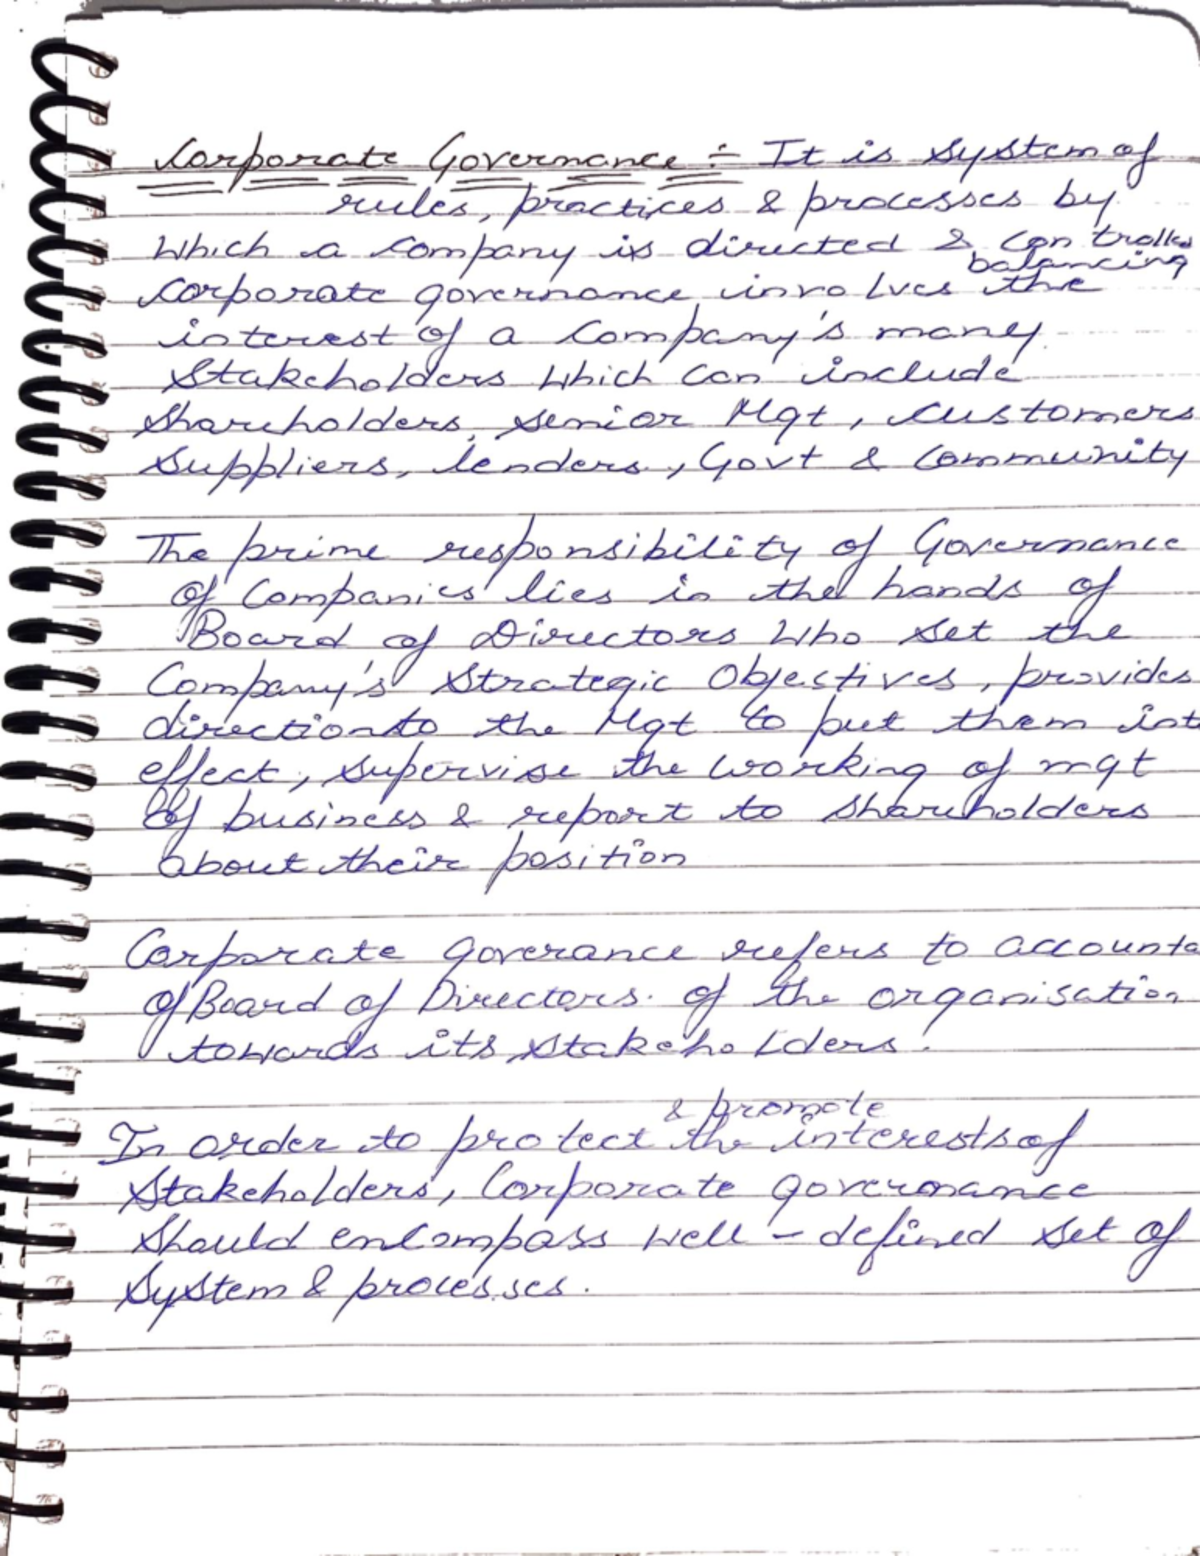 Corporate Governance :- It is system of
rules, practices & processes by
which a company is directed & controlled
balancing
corporate governance involves the
interest of a company's many
stakeholders which can include
shareholders, senior Mgt, customers
suppliers, lenders, Govt & community
The prime responsibility of Governance
of Companies lies in the hands of
Board of Directors who set the
Company's strategic objectives, provides
direction to the Mgt to put them int
effect, supervise the working of mgt
of business & report to shareholders
about their position
Corporate goverance refers to accounta
of Board of Directors. of the organisation
towards its stakeholders.
& promote
In order to protect the interests of
stakeholders, Corporate governance
should encompass well-defined set of
system & processes.